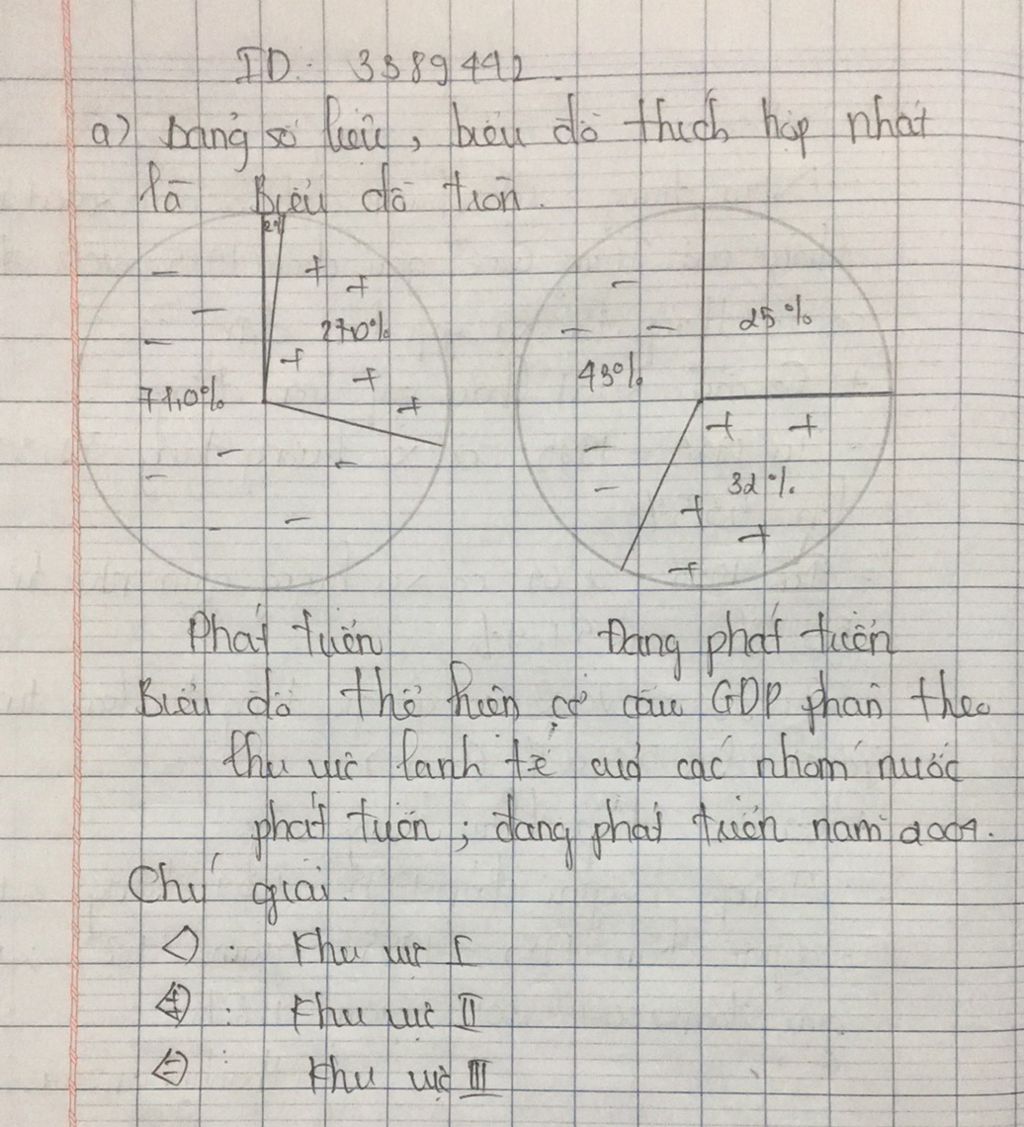 ID: 3389442.
a) Bảng số liệu, biểu đồ thích hợp nhất
là Biểu đồ tròn.
2%
27,0%
71,0%
25%
43%
32%
Phát triển
Đang phát triển
Biểu đồ thể hiện cơ cấu GDP phân theo
khu vực kinh tế của các nhóm nước
phát triển; đang phát triển năm 2004.
Chú giải.
: Khu vực I
+ : Khu vực II
- : Khu vực III